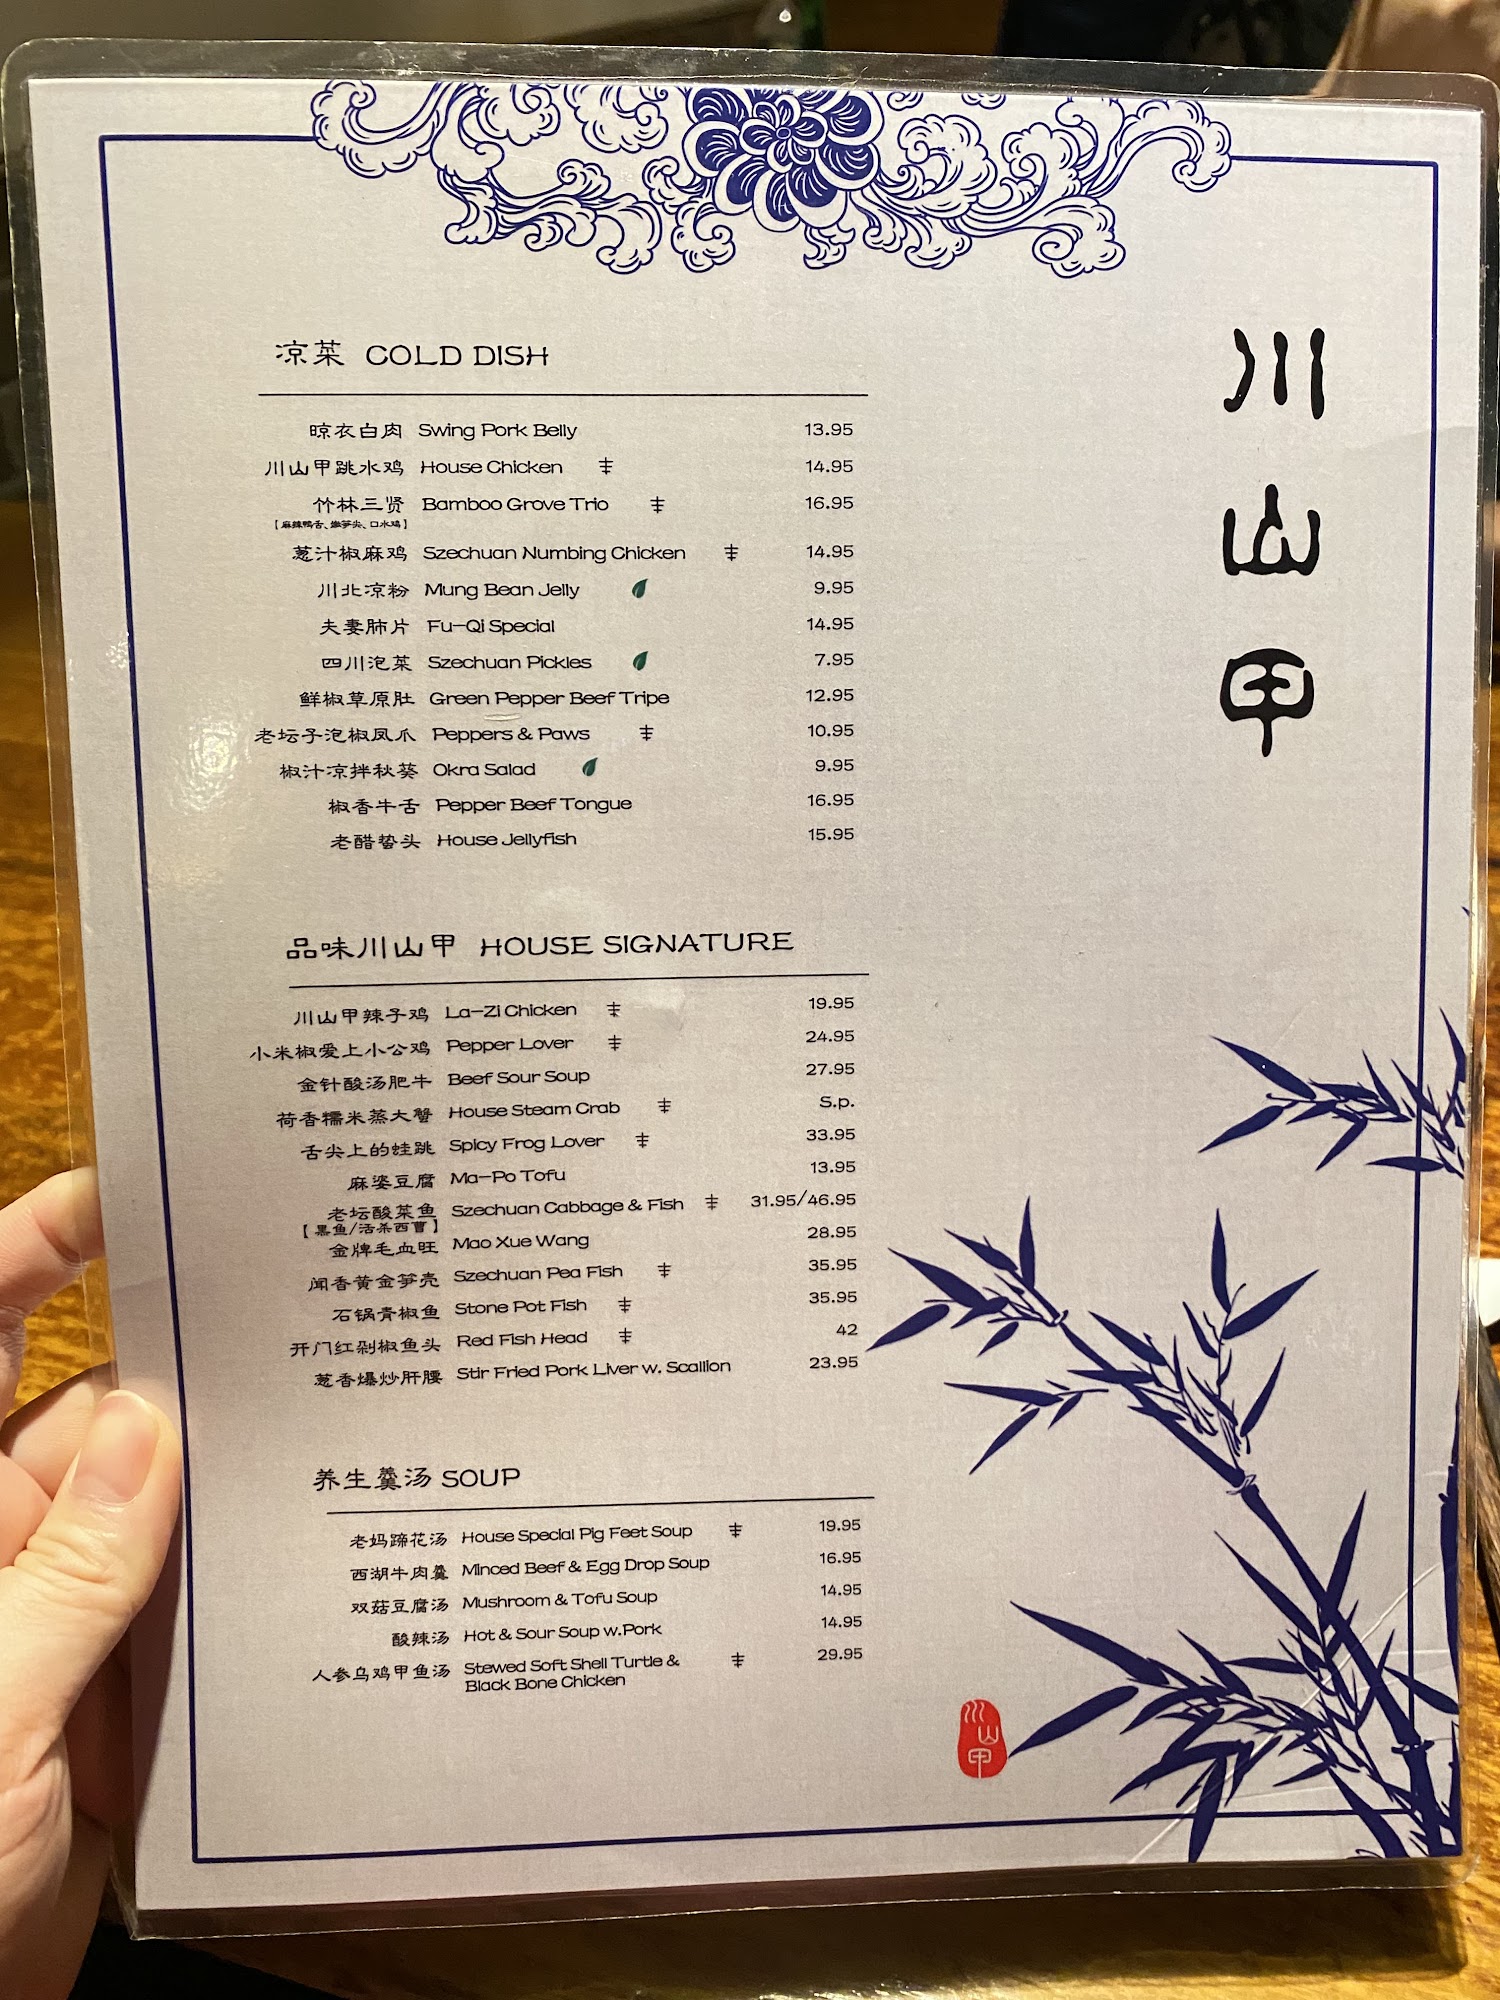 川山甲
凉菜 COLD DISH
晾衣白肉 Swing Pork Belly 13.95
川山甲跳水鸡 House Chicken 14.95
竹林三贤 Bamboo Grove Trio 16.95
【麻辣鸭舌、嫩笋尖、口水鸡】
葱汁椒麻鸡 Szechuan Numbing Chicken 14.95
川北凉粉 Mung Bean Jelly 9.95
夫妻肺片 Fu-Qi Special 14.95
四川泡菜 Szechuan Pickles 7.95
鲜椒草原肚 Green Pepper Beef Tripe 12.95
老坛子泡椒凤爪 Peppers & Paws 10.95
椒汁凉拌秋葵 Okra Salad 9.95
椒香牛舌 Pepper Beef Tongue 16.95
老醋蛰头 House Jellyfish 15.95
品味川山甲 HOUSE SIGNATURE
川山甲辣子鸡 La-Zi Chicken 19.95
小米椒爱上小公鸡 Pepper Lover 24.95
金针酸汤肥牛 Beef Sour Soup 27.95
荷香糯米蒸大蟹 House Steam Crab S.p.
舌尖上的蛙跳 Spicy Frog Lover 33.95
麻婆豆腐 Ma-Po Tofu 13.95
老坛酸菜鱼 Szechuan Cabbage & Fish 31.95/46.95
【黑鱼/活杀西曹】
金牌毛血旺 Mao Xue Wang 28.95
闻香黄金笋壳 Szechuan Pea Fish 35.95
石锅青椒鱼 Stone Pot Fish 35.95
开门红剁椒鱼头 Red Fish Head 42
葱香爆炒肝腰 Stir Fried Pork Liver w. Scallion 23.95
养生羹汤 SOUP
老妈蹄花汤 House Special Pig Feet Soup 19.95
西湖牛肉羹 Minced Beef & Egg Drop Soup 16.95
双菇豆腐汤 Mushroom & Tofu Soup 14.95
酸辣汤 Hot & Sour Soup w.Pork 14.95
人参乌鸡甲鱼汤 Stewed Soft Shell Turtle & 29.95
Black Bone Chicken
川山甲